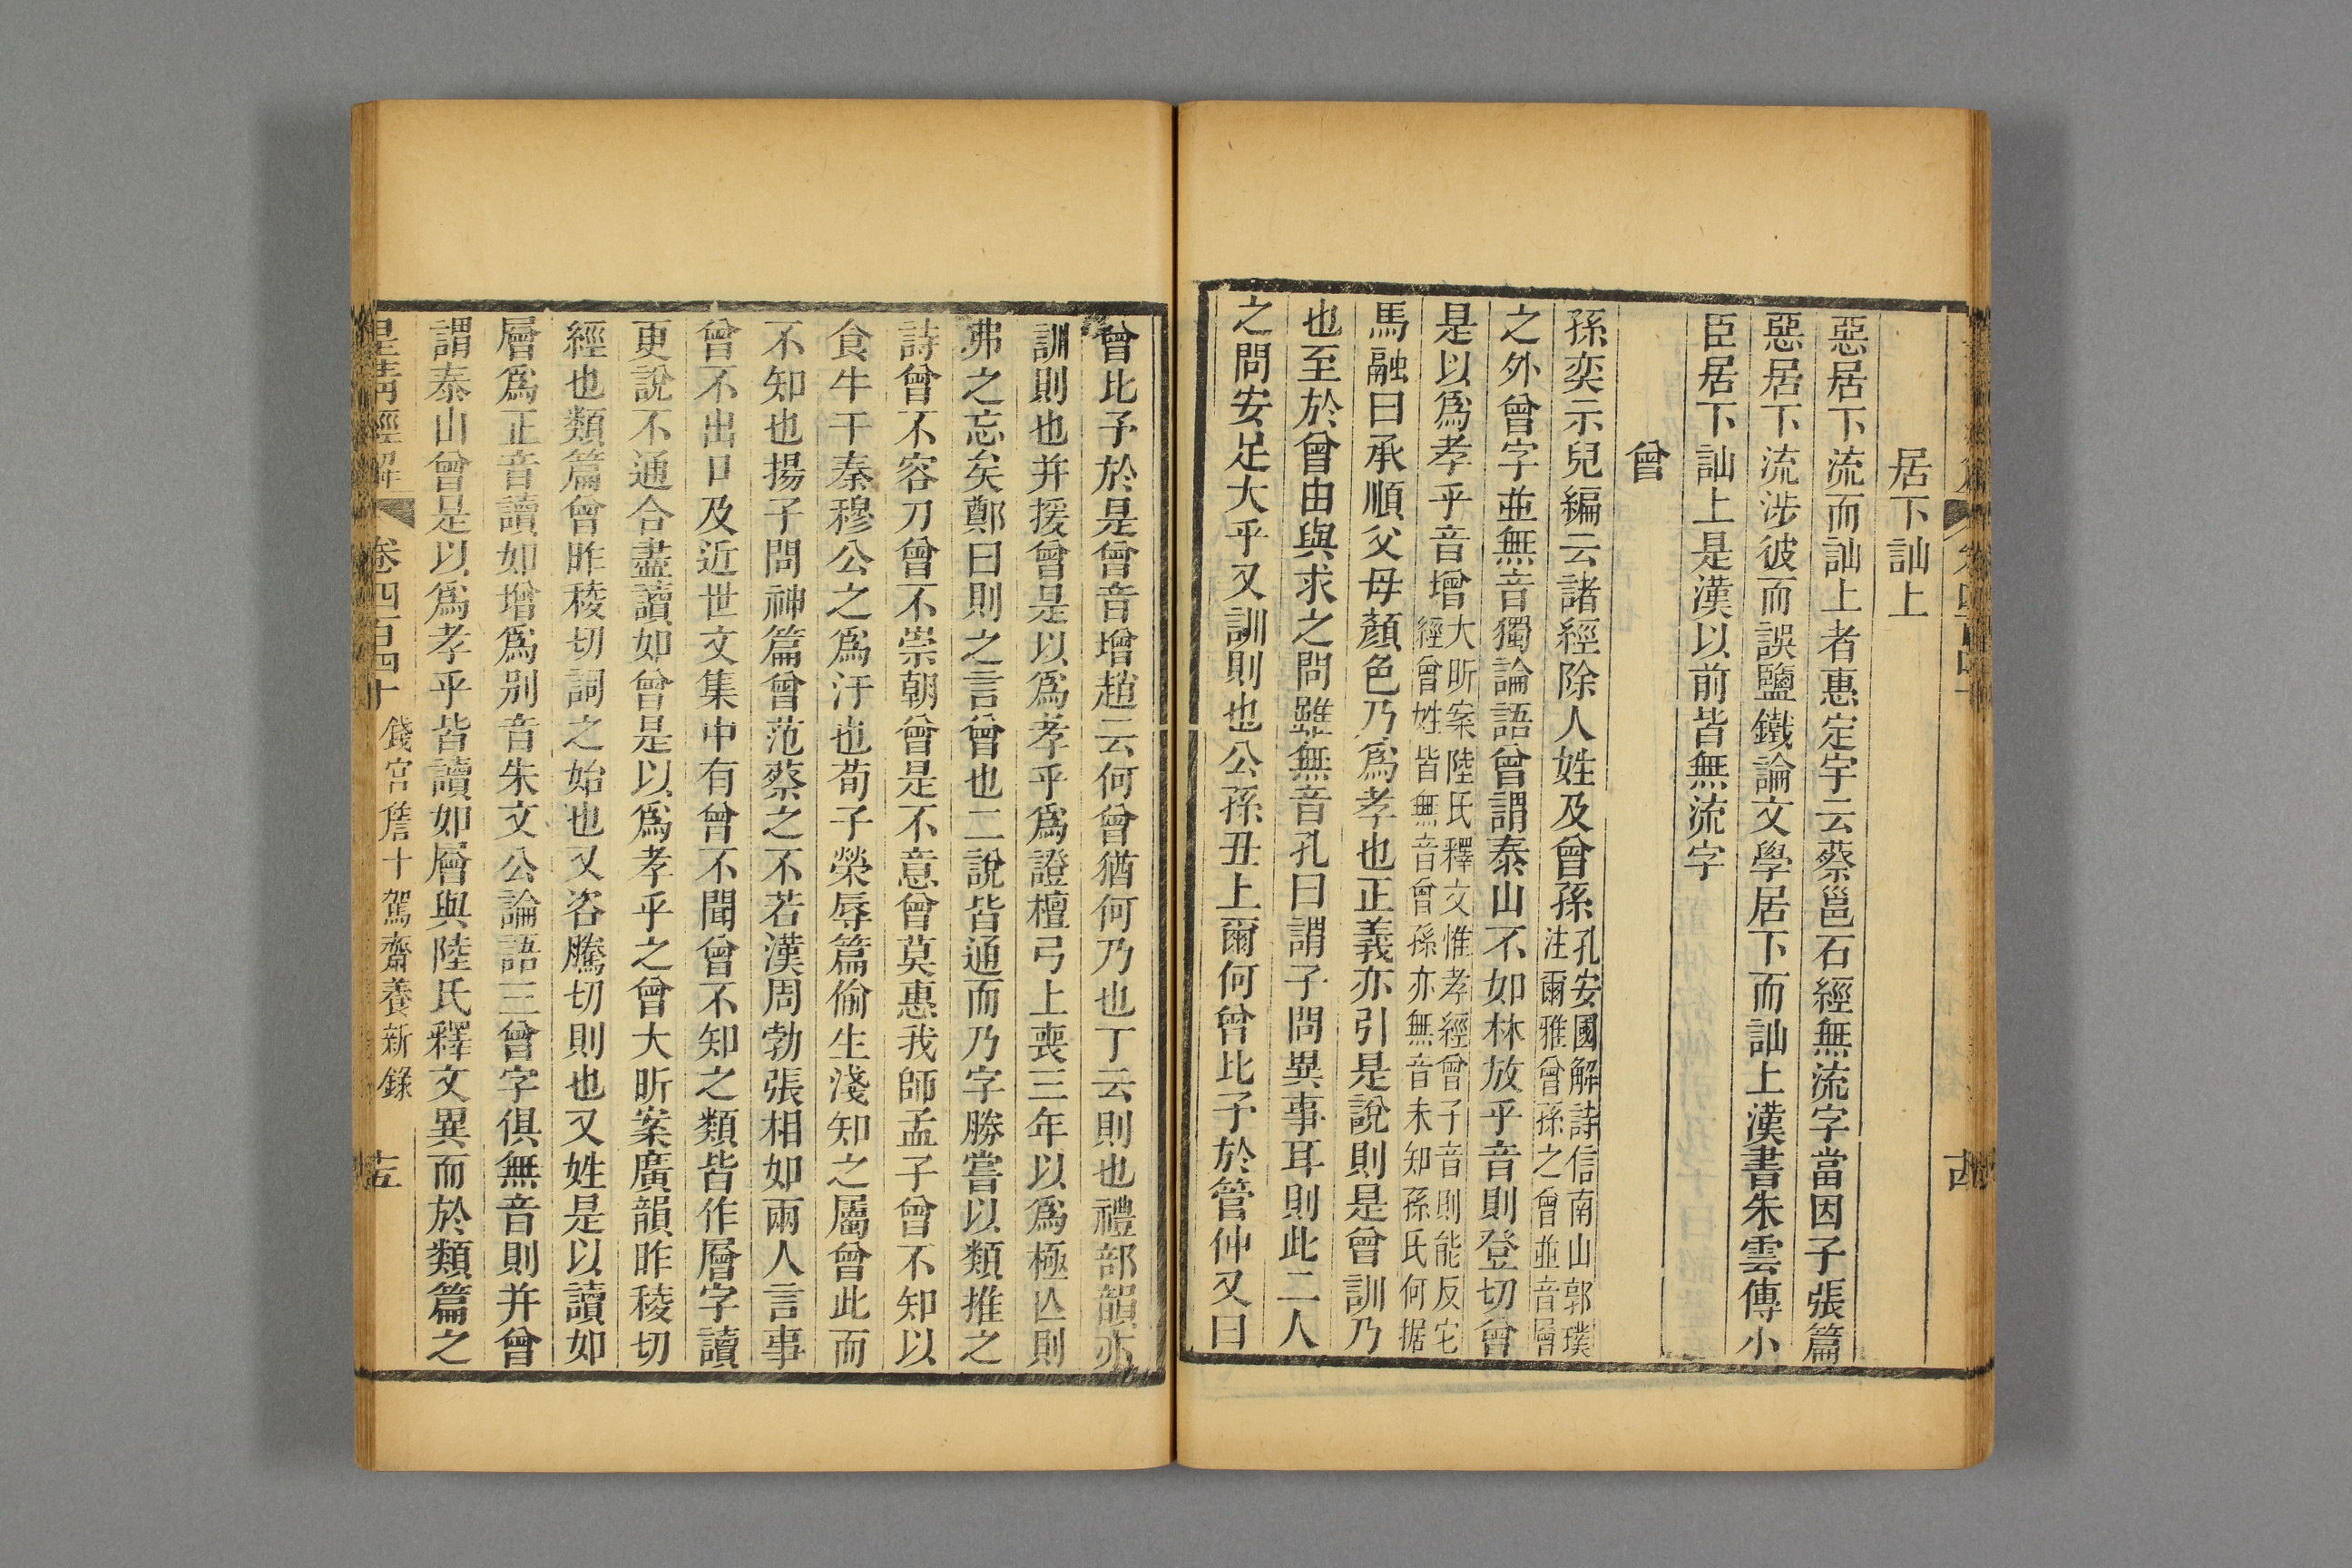 居下訕上
惡居下流而訕上者惠定宇云蔡邕石經無流字當因子張篇
惡居下流涉彼而誤鹽鐵論文學居下而訕上漢書朱雲傳小
臣居下訕上是漢以前皆無流字
曾
孫奕示兒編云諸經除人姓及曾孫孔安國解詩信南山郭璞注爾雅曾孫之曾並音層
之外曾字並無音獨論語曾謂泰山不如林放乎音則登切曾
是以爲孝乎音增大昕案陸氏釋文惟孝經曾子音則能反它經曾姓皆無音曾孫亦無音未知孫氏何据
馬融曰承順父母顏色乃爲孝也正義亦引是說則是曾訓乃
也至於曾由與求之問雖無音孔曰謂子問異事耳則此二人
之問安足大乎又訓則也公孫丑上爾何曾比予於管仲又曰
曾比予於是曾音增趙云何曾猶何乃也丁云則也禮部韻亦
訓則也并援曾是以爲孝乎爲證檀弓上喪三年以爲極亾則
弗之忘矣鄭曰則之言曾也二說皆通而乃字勝嘗以類推之
詩曾不容刀曾不崇朝曾是不意曾莫惠我師孟子曾不知以
食牛干秦穆公之爲汙也荀子榮辱篇偷生淺知之屬曾此而
不知也揚子問神篇曾范蔡之不若漢周勃張相如兩人言事
曾不出口及近世文集中有曾不聞曾不知之類皆作層字讀
更說不通合盡讀如曾是以爲孝乎之曾大昕案廣韻昨稜切
經也類篇曾昨稜切詞之始也又咨騰切則也又姓是以讀如
層爲正音讀如增爲別音朱文公論語三曾字俱無音則并曾
謂泰山曾是以爲孝乎皆讀如層與陸氏釋文異而於類篇之
皇清經解 卷四百四十 錢宮詹十駕齋養新錄 十五